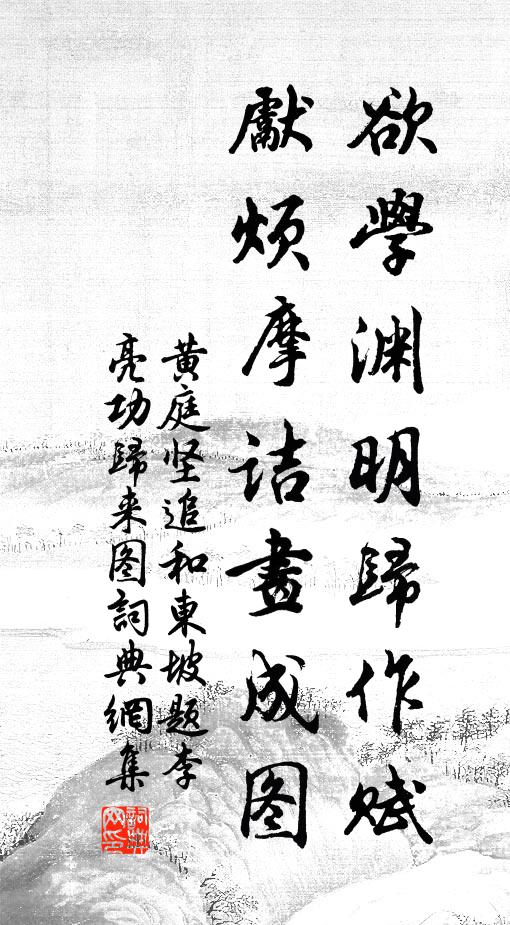 欲學渊明歸作赋
獻烦摩诘畫成图
黄庭坚追和東坡题李
亮功歸来图詞典網集